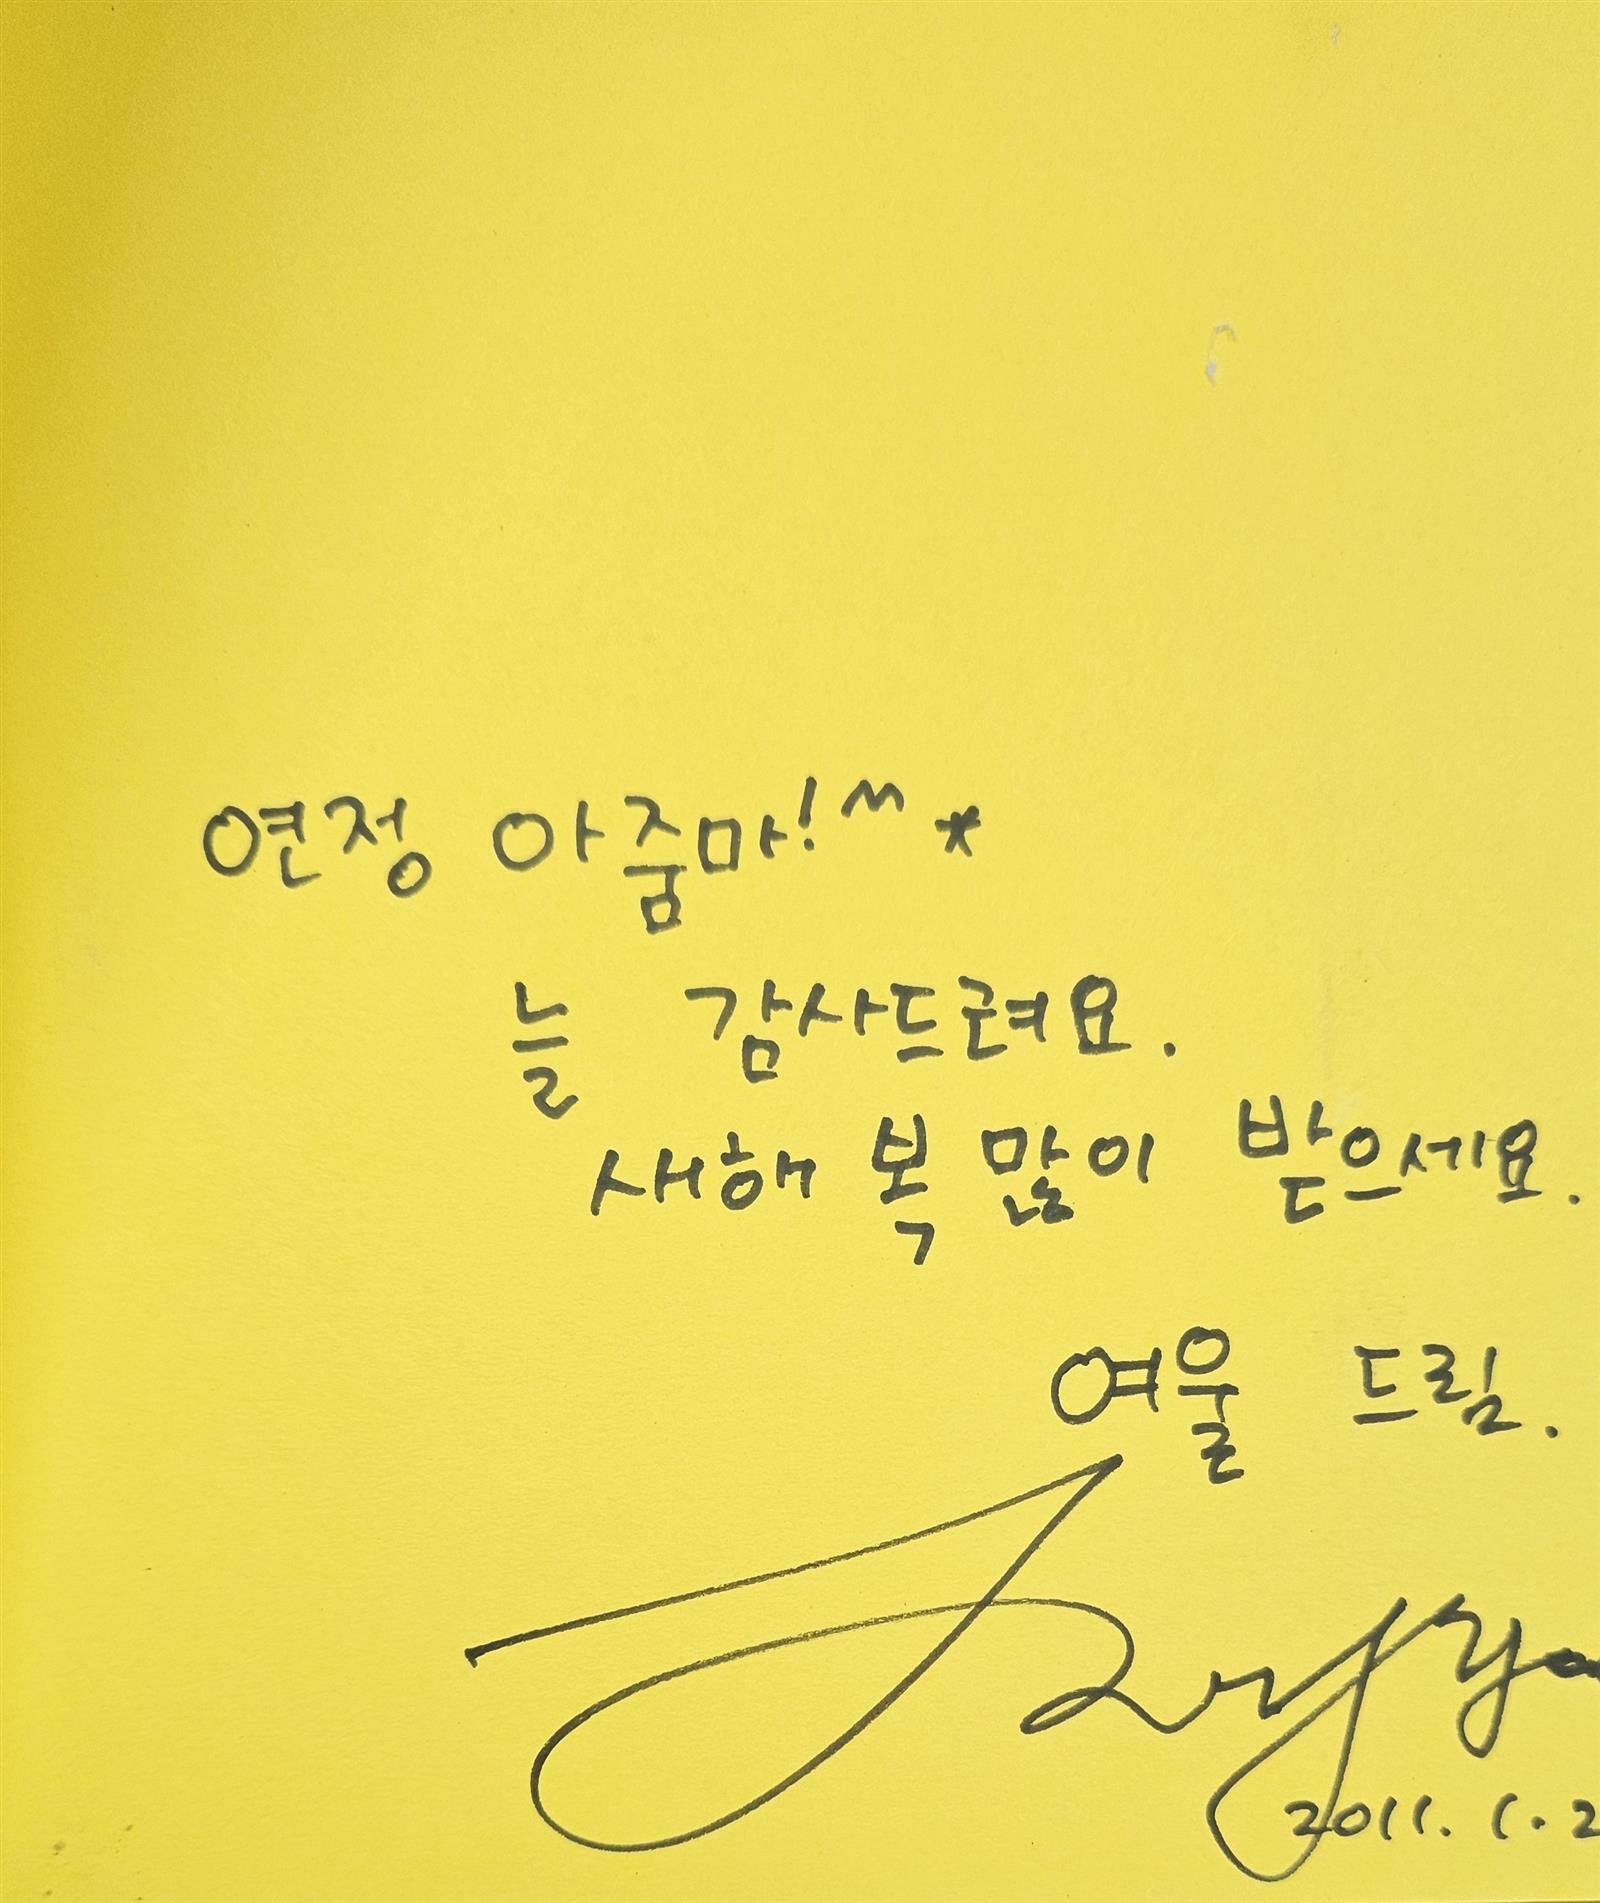 연정 아줌마! ^^*
늘 감사드려요.
새해 복 많이 받으세요.
여울 드림.
2011. 1. 2